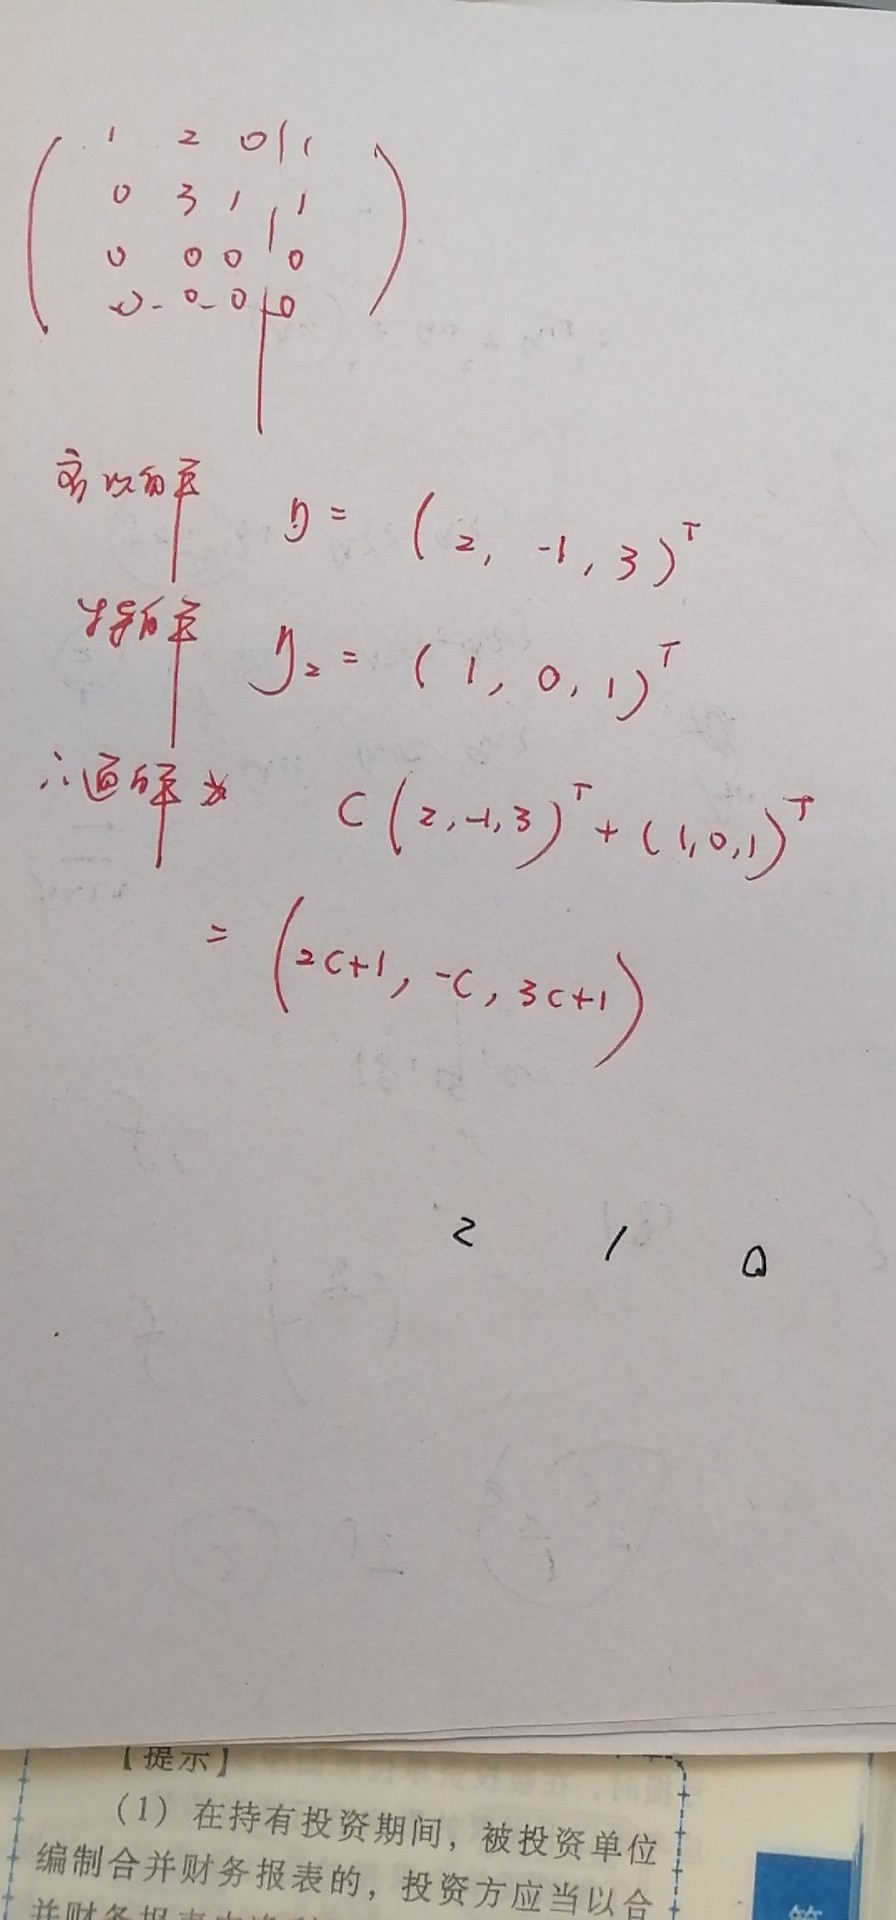 1 2 0 | 1
0 3 1 | 1
0 0 0 0
0 0 0 0
齐次解 η = (2, -1, 3)ᵀ
特解 η₂ = (1, 0, 1)ᵀ
∴通解为 C(2,-1,3)ᵀ + (1,0,1)ᵀ
= (2C+1, -C, 3C+1)
2 1 0
【提示】
(1) 在持有投资期间，被投资单位
编制合并财务报表的，投资方应当以合